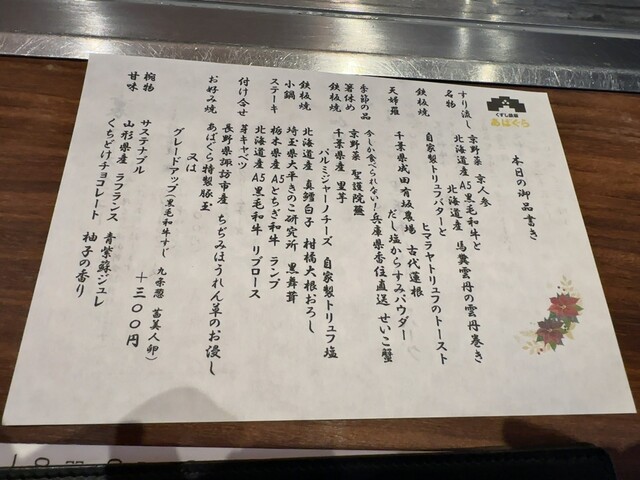 くずし鉄板
あばぐら
本日の御品書き
すり流し 京野菜 京人参
名物 北海道産A5黒毛和牛と
北海道産 馬糞雲丹の雲丹巻き
鉄板焼 自家製トリュフバターと
ヒマラヤトリュフのトースト
天婦羅 千葉県成田有坂農場 古代蓮根
だし塩からすみパウダー
季節の品 今しか食べられない！兵庫県香住直送 せいこ蟹
箸休め 京野菜 聖護院蕪
鉄板焼 千葉県産 里芋
パルミジャーノチーズ 自家製トリュフ塩
鉄板焼 北海道産 真鱈白子 柑橘大根おろし
小鍋 埼玉県大平きのこ研究所 黒舞茸
ステーキ 栃木県産A5とちぎ和牛 ランプ
北海道産A5黒毛和牛 リブロース
付け合せ 芽キャベツ
長野県諏訪市産 ちぢみほうれん草のお浸し
お好み焼 あばぐら特製豚玉
又は
グレードアップ(黒毛和牛すじ 九条葱 茜美人卵)
＋三〇〇円
椀物 サステナブル
甘味 山形県産 ラフランス 青紫蘇ジュレ
くちどけチョコレート 柚子の香り